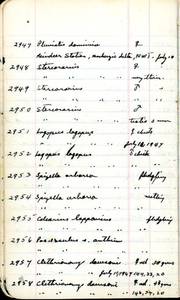 2947 Pluvialis dominica ♀
Reindeer Station, Mackenzie delta, N.W.T., July 10
2948 Stercorarius ♀
" "
2949 Stercorarius ♂
" " "
2950 Stercorarius ♂
" " testis 5 mm
2951 Lagopus lagopus ♀ chick
" " July 12, 1947
2952 Lagopus lagopus ♀ chick
" " "
2953 Spizella arborea fledgling
" " "
2954 Spizella arborea
" " "
2955 Calcarius lapponicus fledgling
" " "
2956 Passerculus s. anthinus
" " "
2957 Clethrionomys dawsoni ♀ ad.
" " July 13, 1947
2958 Clethrionomys dawsoni ♀ ad.